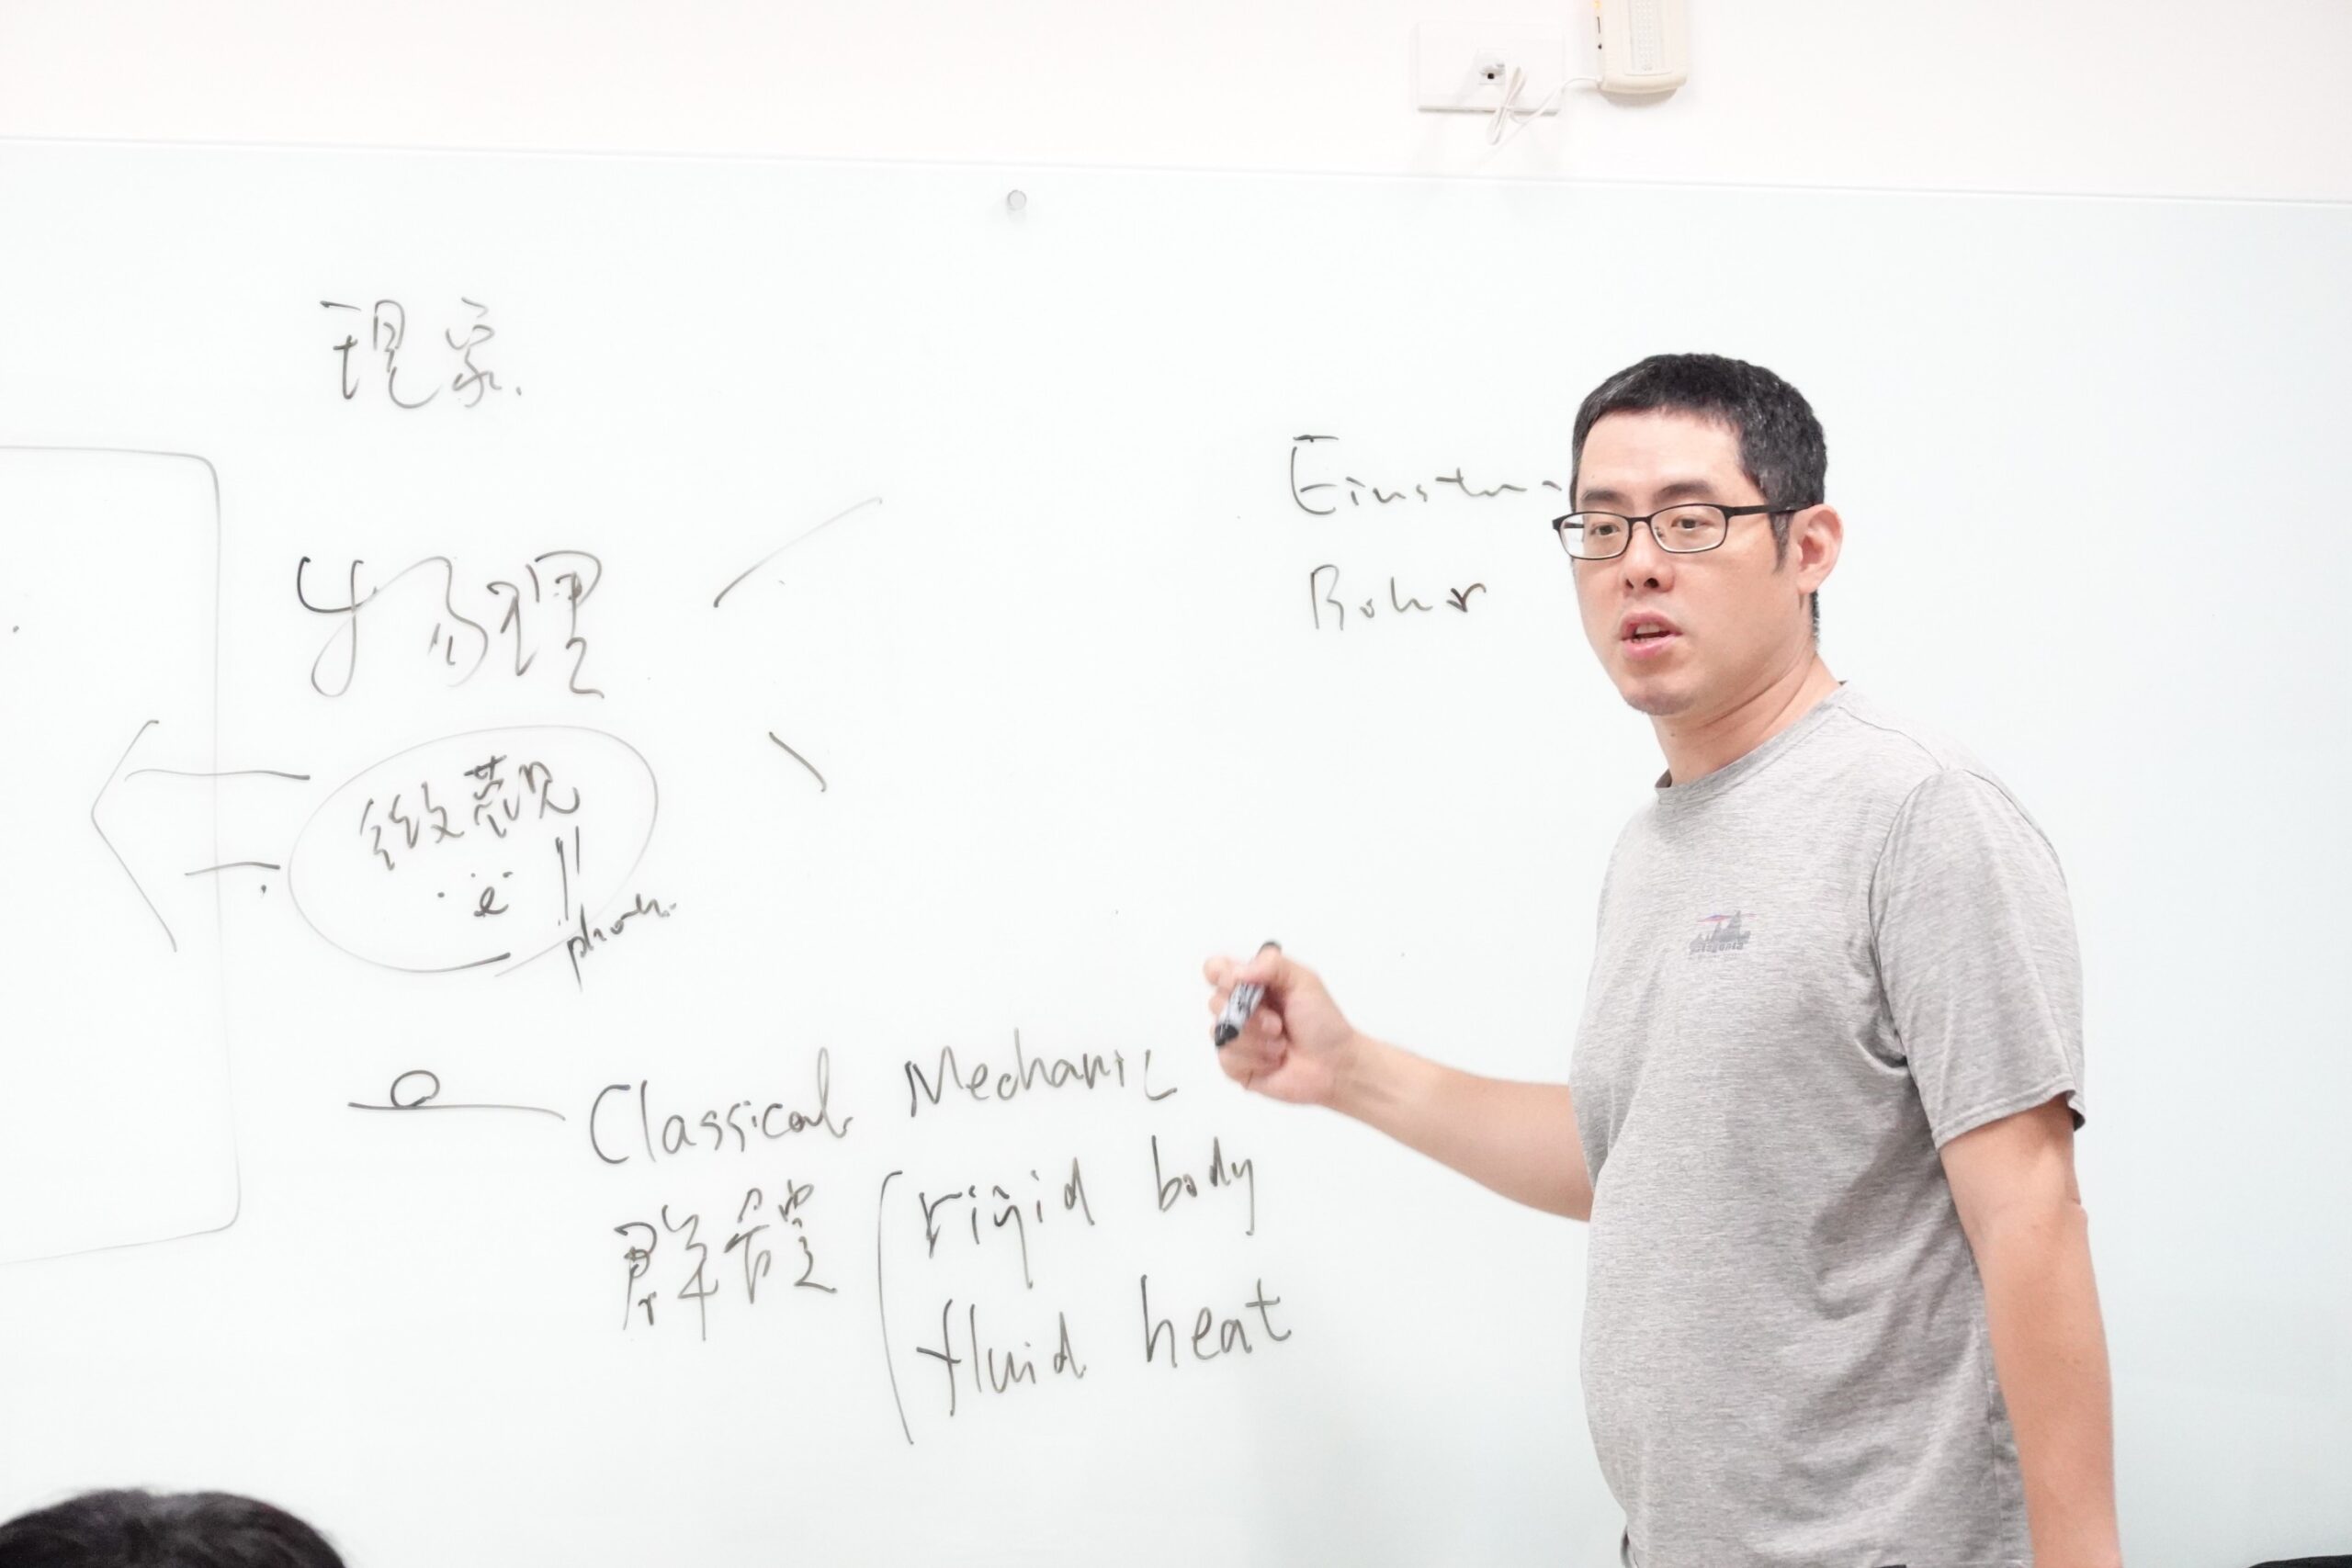 現象
Einstein
Bohr
物理
微觀
e
photon
Classical Mechanic
群體
rigid body
fluid heat
patagonia